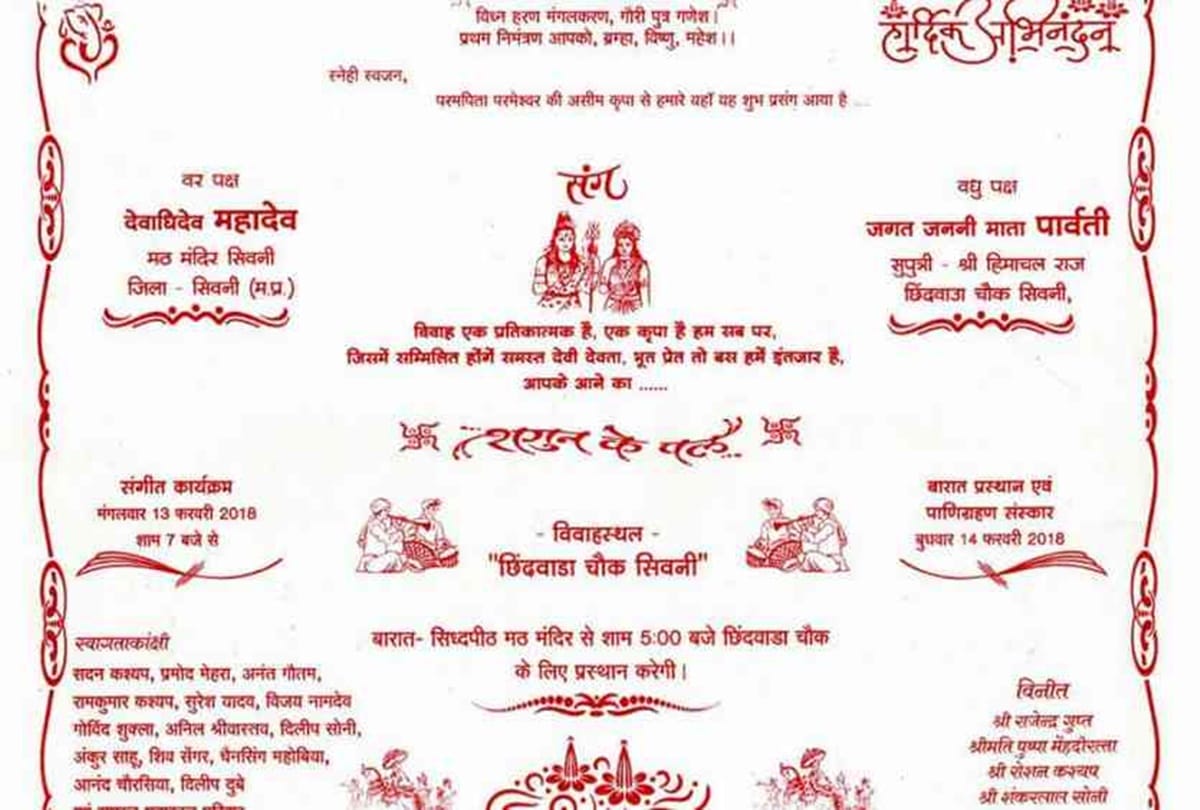 विघ्न हरण मंगलकरण, गौरी पुत्र गणेश।
प्रथम निमंत्रण आपको, ब्रम्हा, विष्णु, महेश।।
हार्दिक अभिनंदन
स्नेही स्वजन,
परमपिता परमेश्वर की असीम कृपा से हमारे यहाँ यह शुभ प्रसंग आया है ...
वर पक्ष
देवाधिदेव महादेव
मठ मंदिर सिवनी
जिला - सिवनी (म.प्र.)
संग
वधु पक्ष
जगत जननी माता पार्वती
सुपुत्री - श्री हिमाचल राज
छिंदवाडा चौक सिवनी,
विवाह एक प्रतिकात्मक है, एक कृपा है हम सब पर,
जिसमें सम्मिलित होंगें समस्त देवी देवता, भूत प्रेत तो बस हमें इंतजार है,
आपके आने का ......
शगुन के पल..
संगीत कार्यक्रम
मंगलवार 13 फरवरी 2018
शाम 7 बजे से
- विवाहस्थल -
"छिंदवाडा चौक सिवनी"
बारात प्रस्थान एवं
पाणिग्रहण संस्कार
बुधवार 14 फरवरी 2018
बारात- सिध्दपीठ मठ मंदिर से शाम 5:00 बजे छिंदवाडा चौक
के लिए प्रस्थान करेगी।
स्वागताकांक्षी
सदन कश्यप, प्रमोद मेहरा, अनंत गौतम,
रामकुमार कश्यप, सुरेश यादव, विजय नामदेव
गोविंद शुक्ला, अनिल श्रीवास्तव, दिलीप सोनी,
अंकुर साहू, शिव सेंगर, चैनसिंग महोबिया,
आनंद चौरसिया, दिलीप दुबे
विनीत
श्री राजेन्द्र गुप्त
श्रीमति पुष्पा मेंहदोरत्ता
श्री रोशन कश्यप
श्री शंकरलाल सोनी